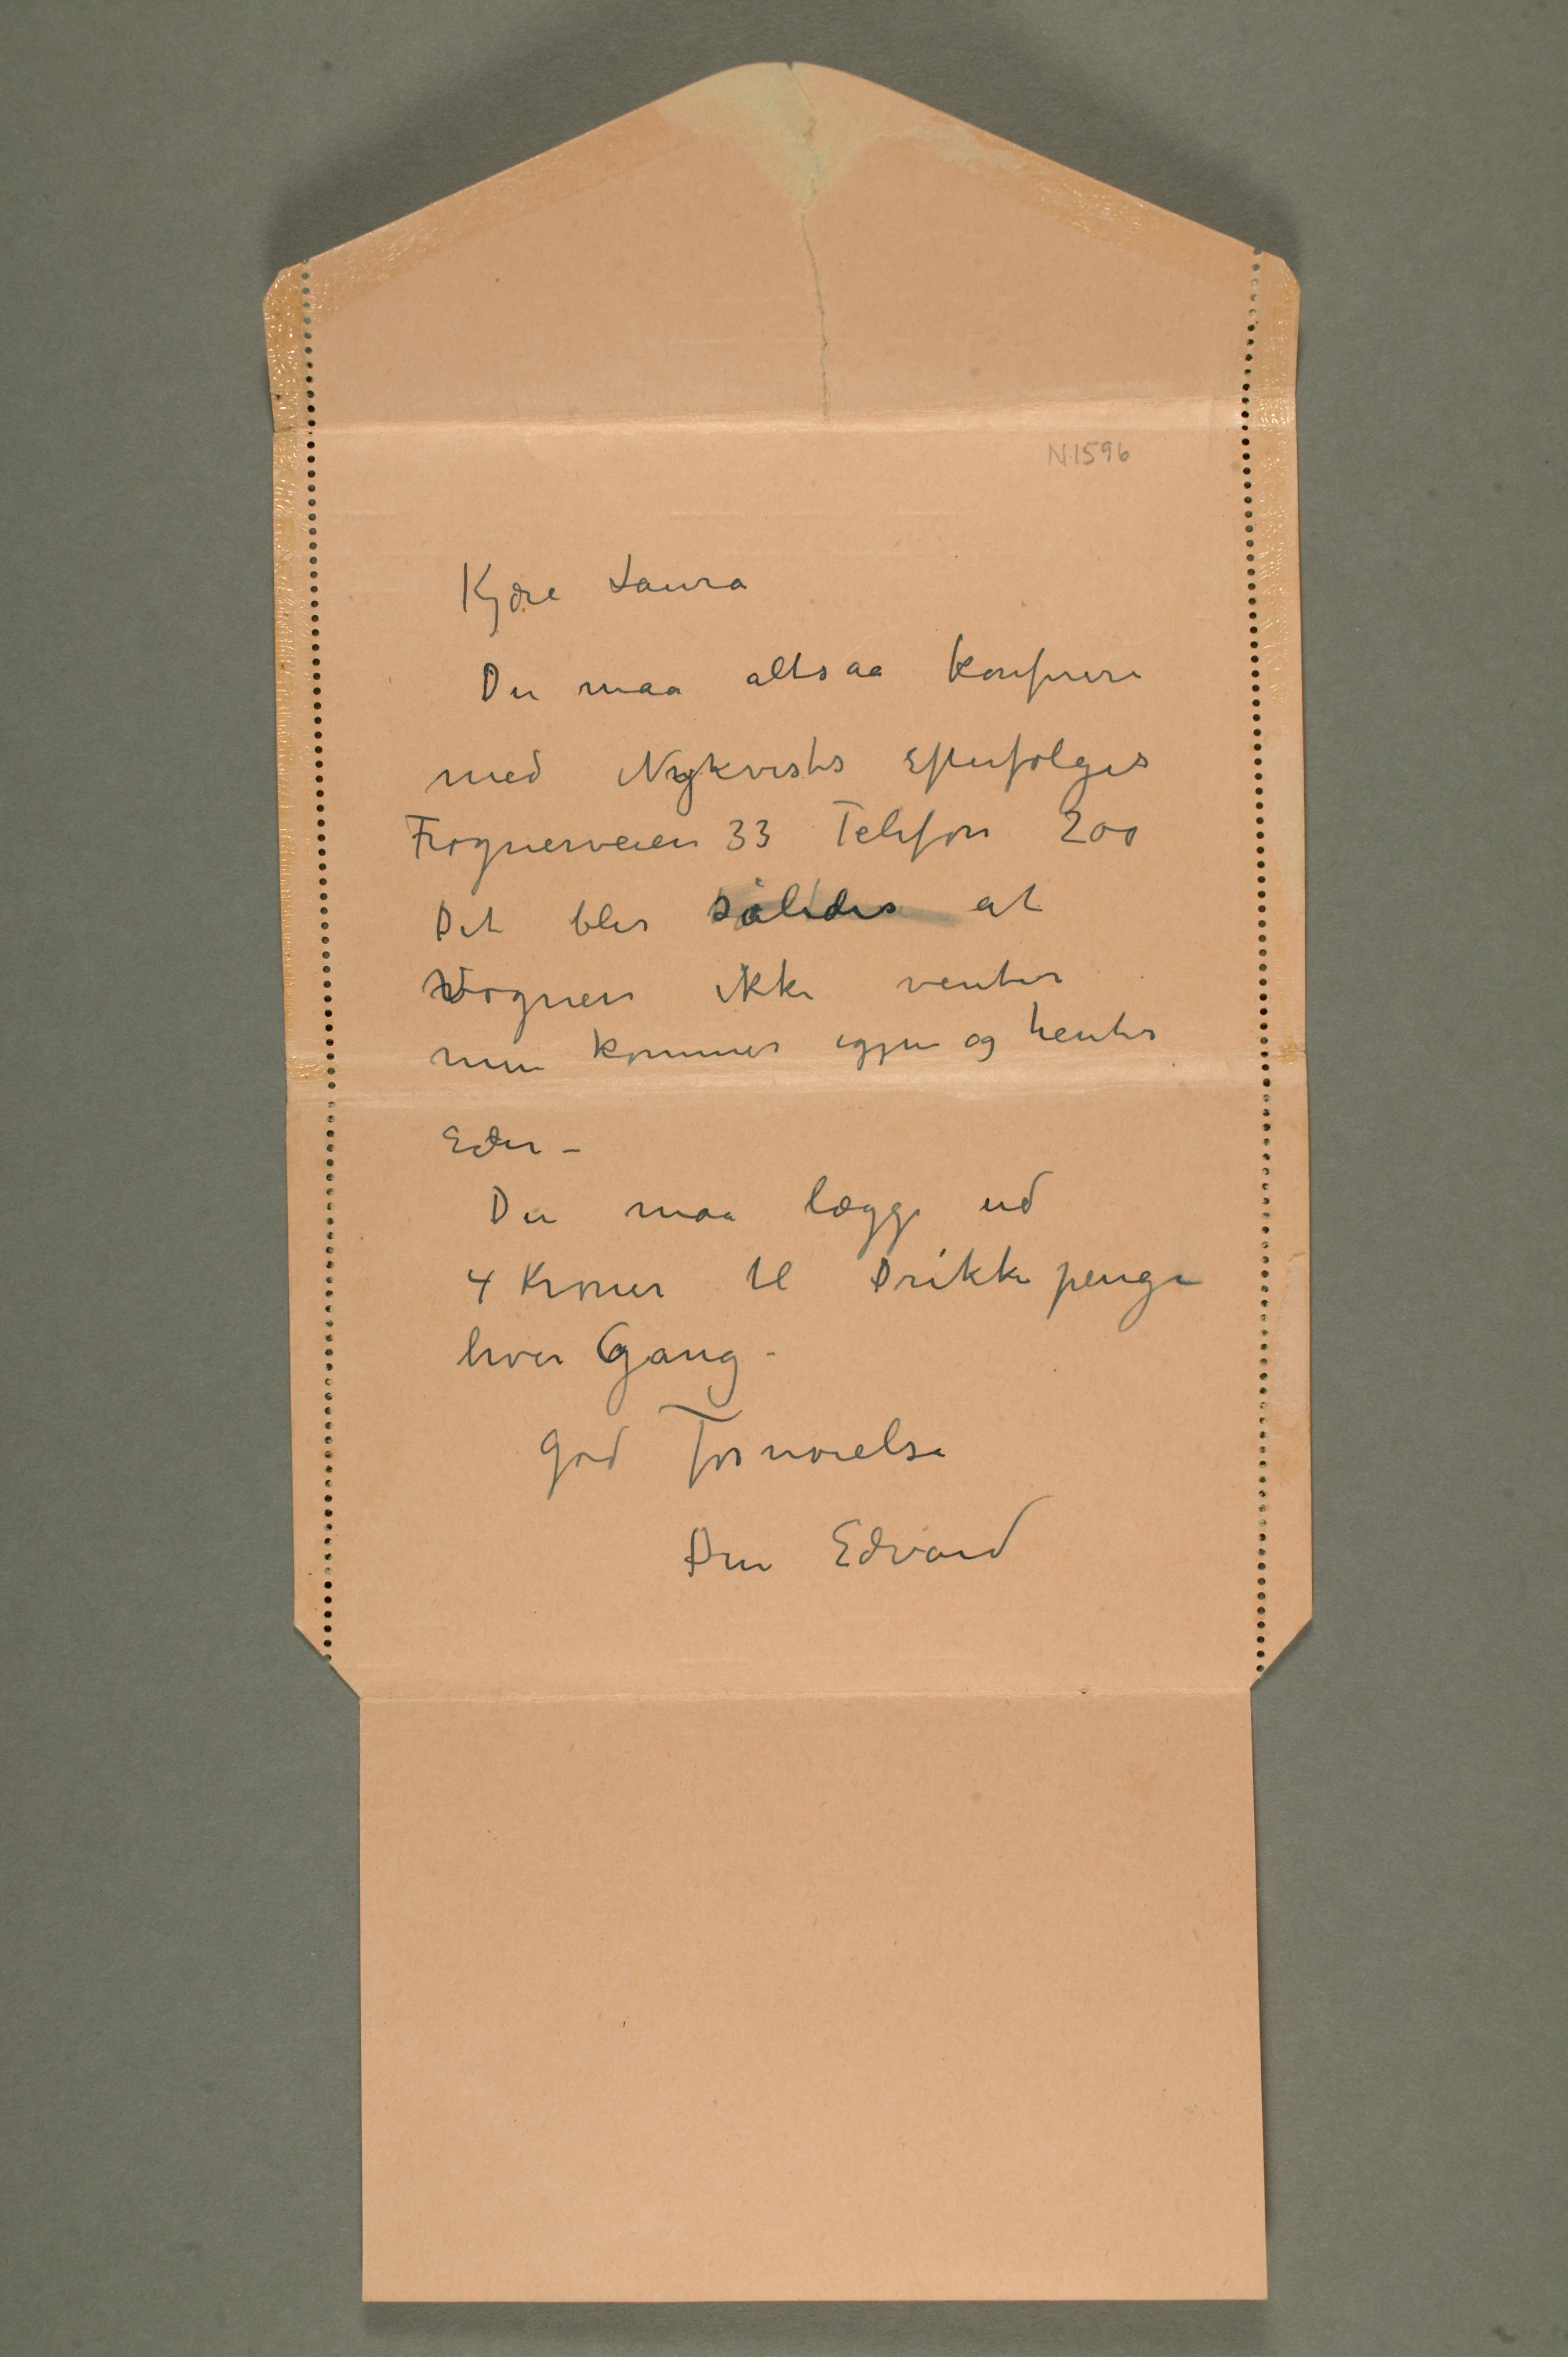 N 1596
Kjære Laura
Du maa altsaa konferere
med Nykvists Efterfølger
Frognerveien 33 Telefon 200
Det blir således at
Vognen ikke venter
men kommer igjen og henter
Eder –
Du maa lægge ud
4 Kroner til Drikkepenge
hver Gang –
God Fornøielse
Din Edvard